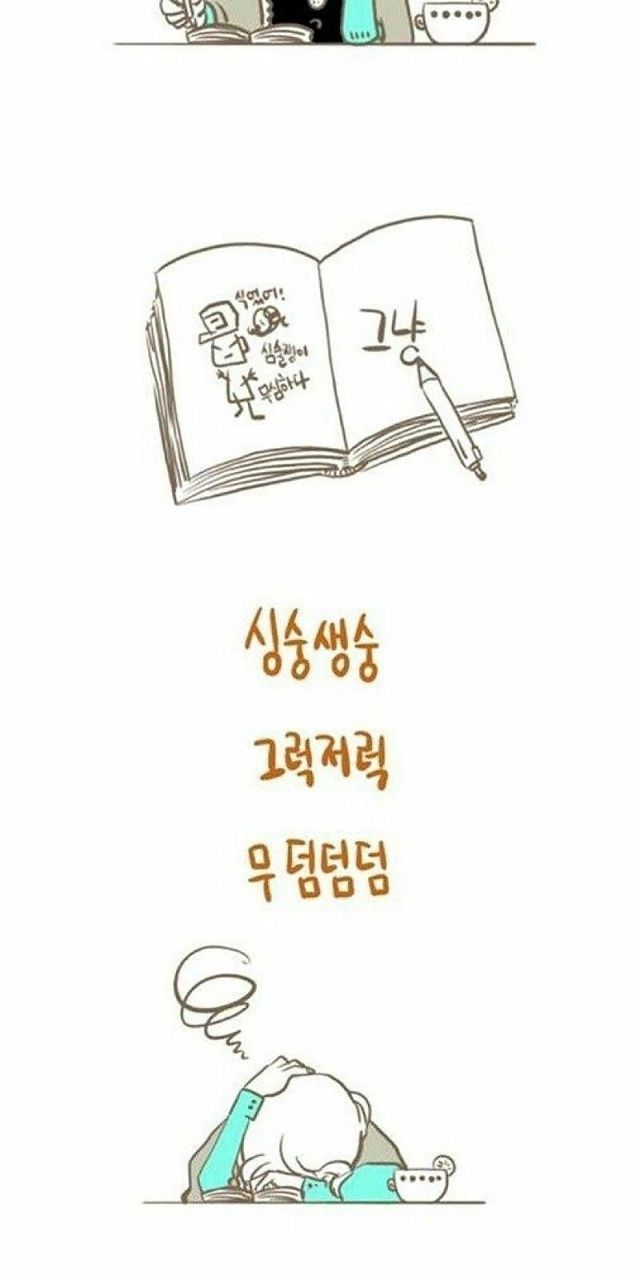 식었어!
심술쟁이
무심하다
그냥
싱숭생숭
그럭저럭
무덤텀덤